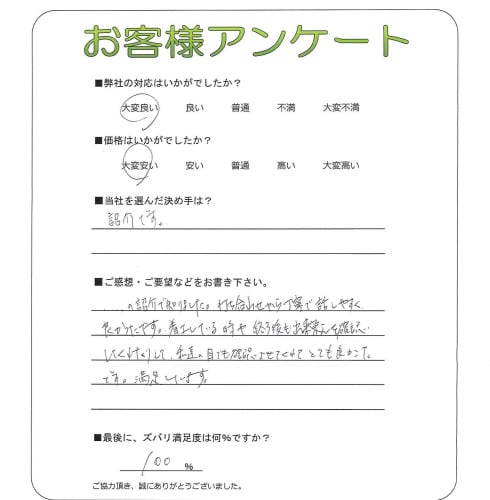 お客様アンケート
■弊社の対応はいかがでしたか？
大変良い 良い 普通 不満 大変不満
■価格はいかがでしたか？
大変安い 安い 普通 高い 大変高い
■当社を選んだ決め手は？
紹介です。
■ご感想・ご要望などをお書き下さい。
の紹介で知りました。打ち合わせから丁寧で話しやすく
良かったです。着工している時や終う後も出来栄えを確認
してくれたりして、私達の目でも確認させてくれてとても良かった
です。満足しています。
■最後に、ズバリ満足度は何%ですか？
100 %
ご協力頂き、誠にありがとうございました。